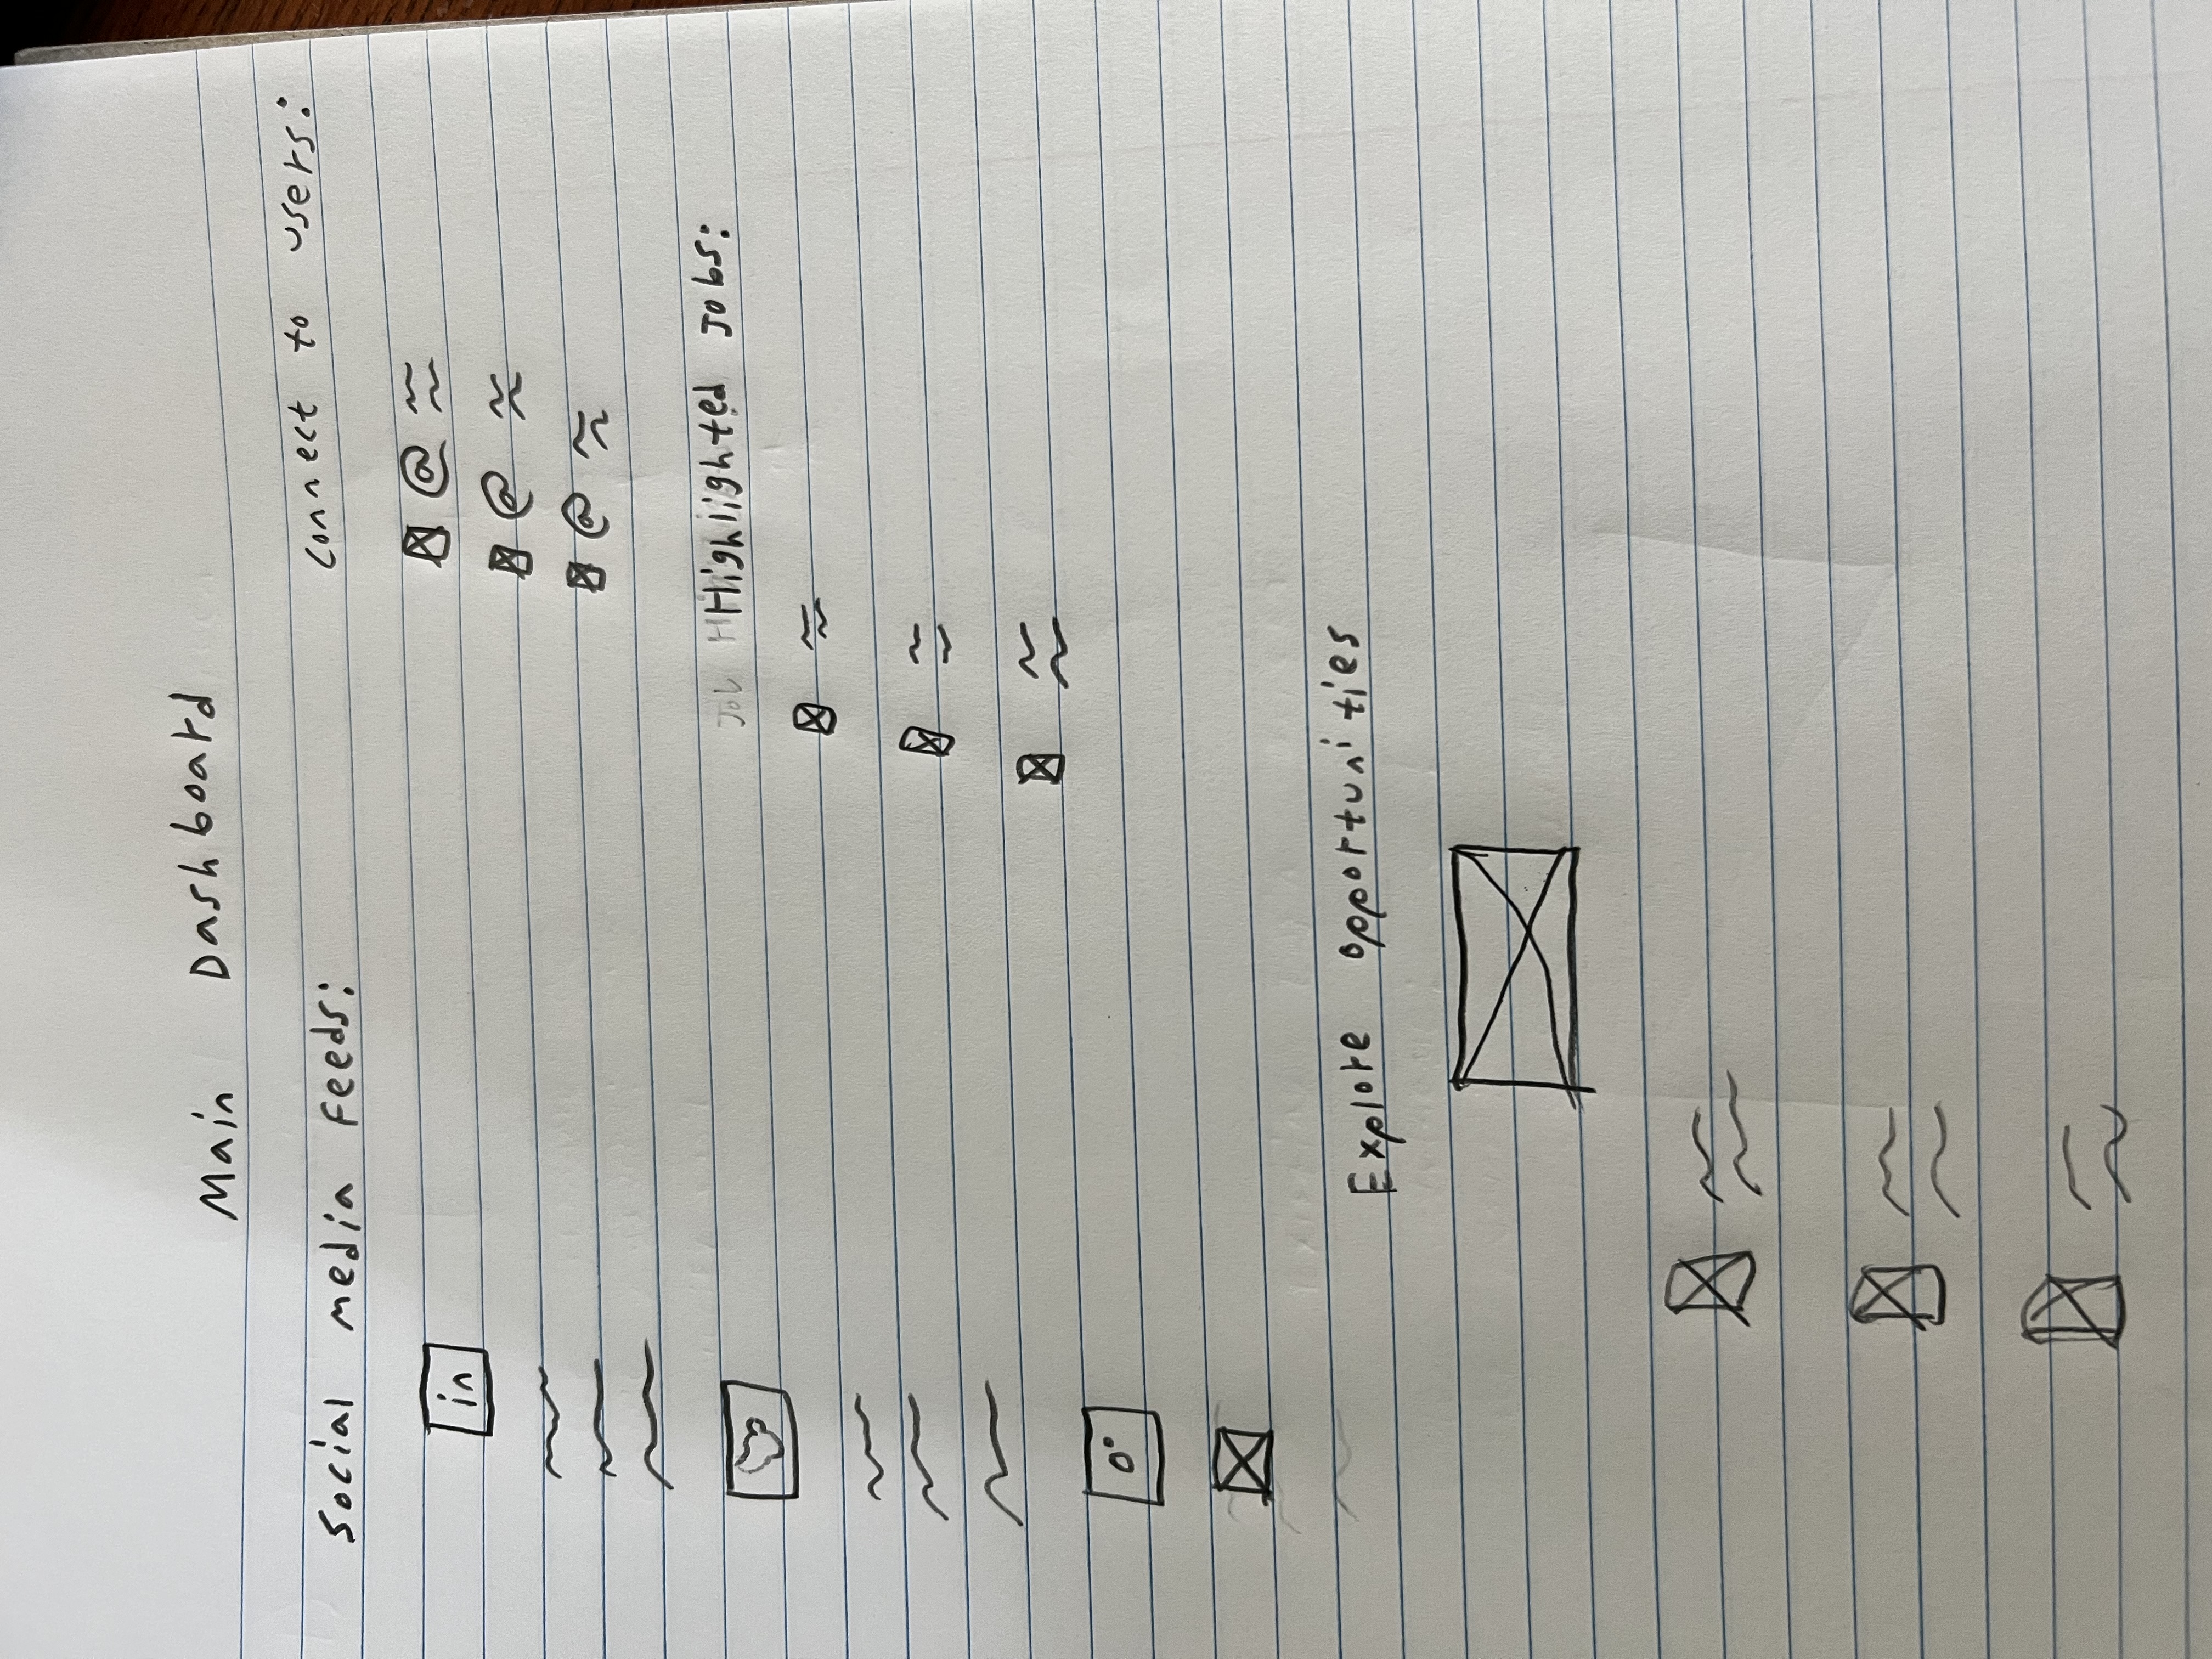 Main Dashboard
Social media Feeds:
connect to users:
in
@
@
@
Job Highlighted Jobs:
Explore opportunities